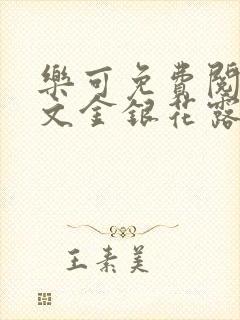 樂可免費閱
文全銀花露
王素美